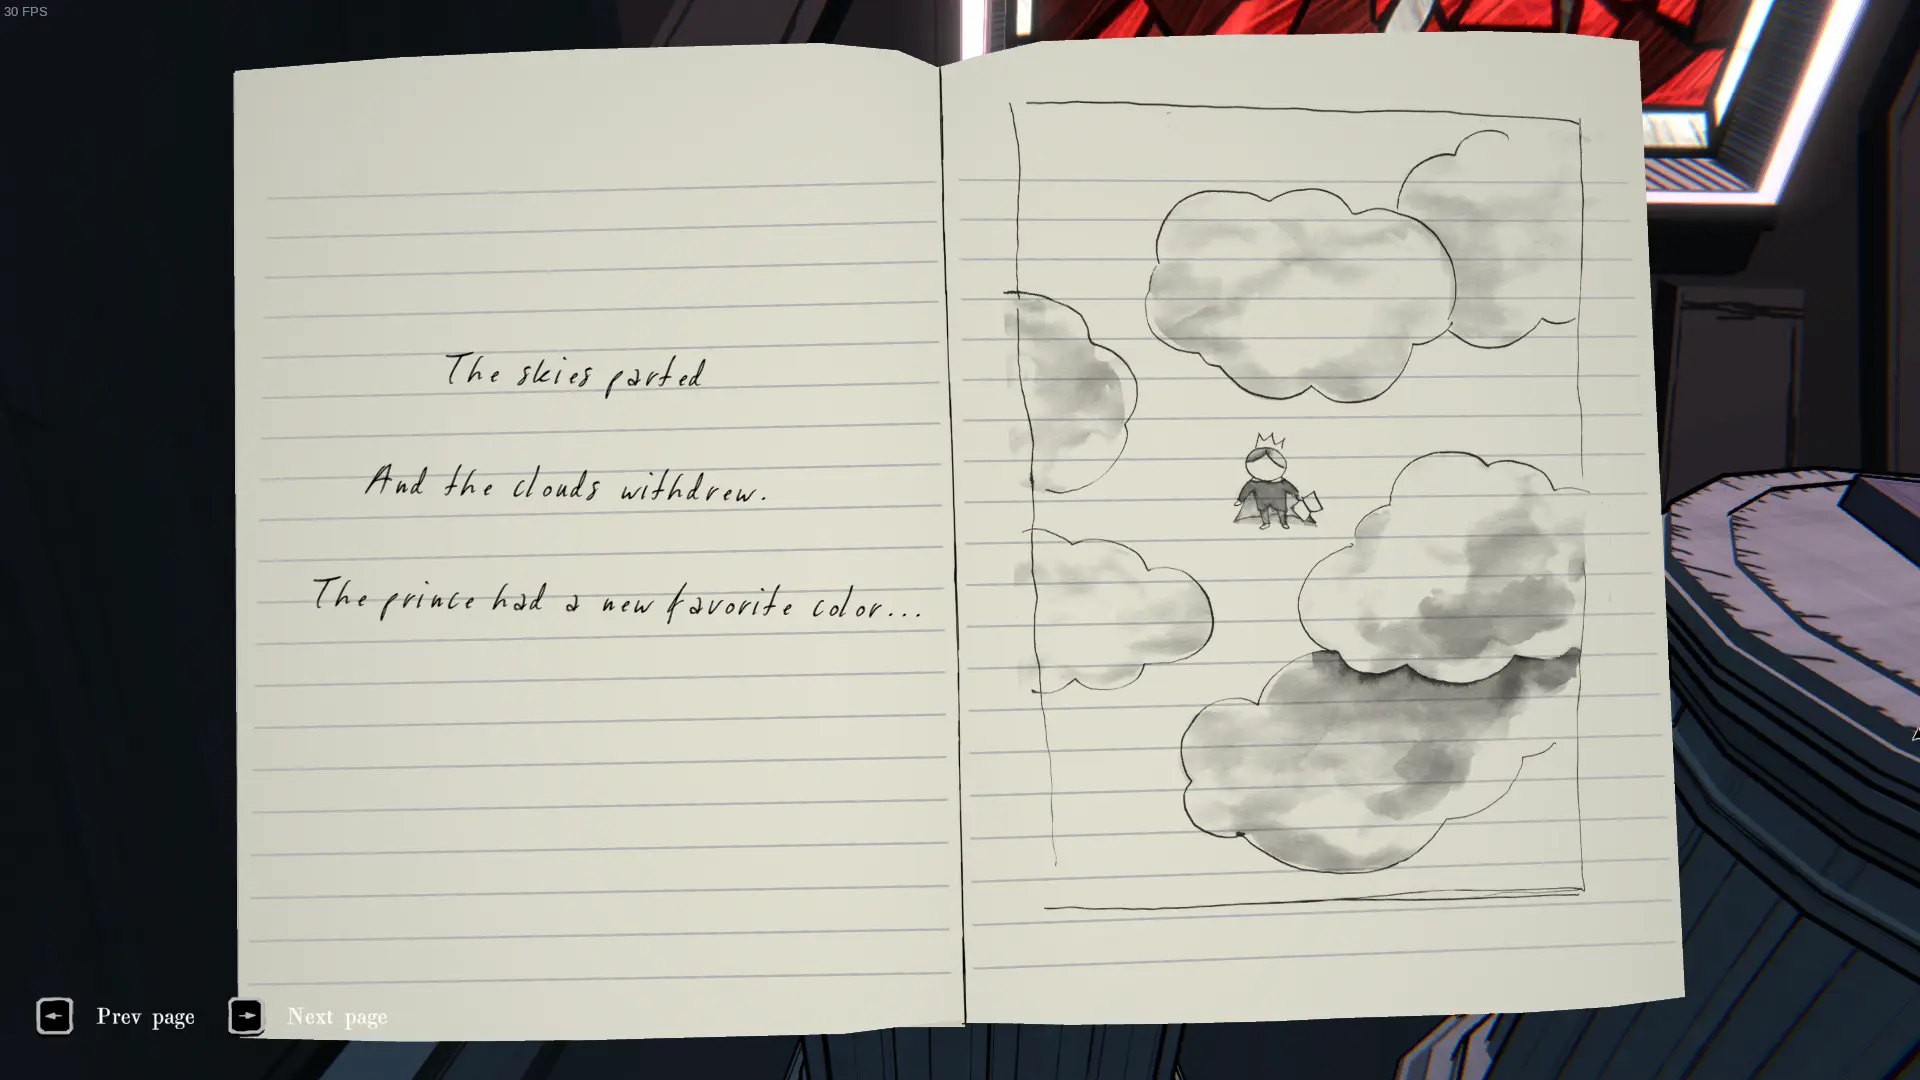 30 FPS
The skies parted
And the clouds withdrew.
The prince had a new favorite color...
Prev page
Next page